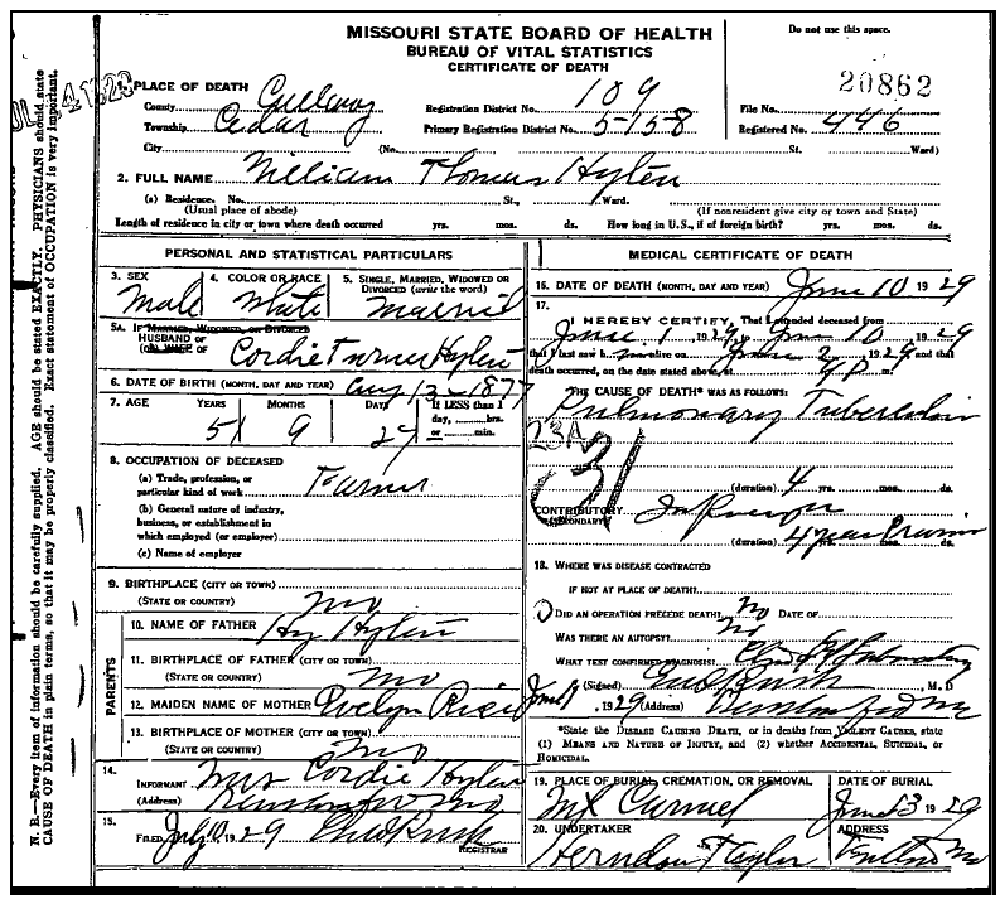 MISSOURI STATE BOARD OF HEALTH
BUREAU OF VITAL STATISTICS
CERTIFICATE OF DEATH
Do not use this space.
20862
1. PLACE OF DEATH
County
Township Cedar
City (No. St. Ward)
Registration District No. 109
Primary Registration District No. 5158
File No.
Registered No. 446
2. FULL NAME William Thomas Hylen
(a) Residence. No. St., Ward.
(Usual place of abode) (If nonresident give city or town and State)
Length of residence in city or town where death occurred yrs. mos. ds. How long in U.S., if of foreign birth? yrs. mos. ds.
PERSONAL AND STATISTICAL PARTICULARS
3. SEX 4. COLOR OR RACE 5. SINGLE, MARRIED, WIDOWED OR
DIVORCED (write the word)
Male White Married
5A. IF MARRIED, WIDOWED, OR DIVORCED
HUSBAND OF
(OR) WIFE OF Cordie Turner Hylen
6. DATE OF BIRTH (MONTH, DAY AND YEAR) Aug 13-1877
7. AGE YEARS MONTHS DAYS If LESS than 1
day, hrs.
or min.
51 9 27
8. OCCUPATION OF DECEASED
(a) Trade, profession, or
particular kind of work Farmer
(b) General nature of industry,
business, or establishment in
which employed (or employer)
(c) Name of employer
9. BIRTHPLACE (CITY OR TOWN)
(STATE OR COUNTRY) Mo
PARENTS
10. NAME OF FATHER Hy Hylen
11. BIRTHPLACE OF FATHER (CITY OR TOWN)
(STATE OR COUNTRY) Mo
12. MAIDEN NAME OF MOTHER Evelyn
13. BIRTHPLACE OF MOTHER (CITY OR TOWN)
(STATE OR COUNTRY) Mo
14.
INFORMANT Mrs Cordie Hylen
(Address) Mo
15.
FILED July 10, 1929
REGISTRAR
MEDICAL CERTIFICATE OF DEATH
16. DATE OF DEATH (MONTH, DAY AND YEAR) June 10 1929
17.
I HEREBY CERTIFY, That I attended deceased from
June 1, 1929, June 10, 1929
that I last saw h m alive on June 2, 1929 and that
death occurred, on the date stated above, at 4 P.
THE CAUSE OF DEATH* WAS AS FOLLOWS:
Pulmonary Tuberculosis
23A
31
(duration) 4 yrs. mos. ds.
CONTRIBUTORY
(SECONDARY)
(duration) 4 years yrs. mos. ds.
18. WHERE WAS DISEASE CONTRACTED
IF NOT AT PLACE OF DEATH?
DID AN OPERATION PRECEDE DEATH? No DATE OF
WAS THERE AN AUTOPSY? No
WHAT TEST CONFIRMED DIAGNOSIS? Laboratory
(Signed) , M. D
, 1929 (Address) Mo
*State the DISEASE CAUSING DEATH, or in deaths from VIOLENT CAUSES, state
(1) MEANS AND NATURE OF INJURY, and (2) whether ACCIDENTAL, SUICIDAL, or
HOMICIDAL.
19. PLACE OF BURIAL, CREMATION, OR REMOVAL DATE OF BURIAL
Mt Carmel June 13 1929
20. UNDERTAKER ADDRESS
Herndon Taylor Fulton Mo
N. B.—Every item of information should be carefully supplied. AGE should be stated EXACTLY. PHYSICIANS should state
CAUSE OF DEATH in plain terms, so that it may be properly classified. Exact statement of OCCUPATION is very important.